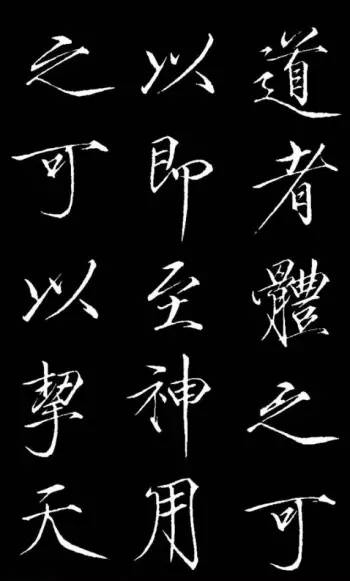 道者體之可
以即至神用
之可以挈天